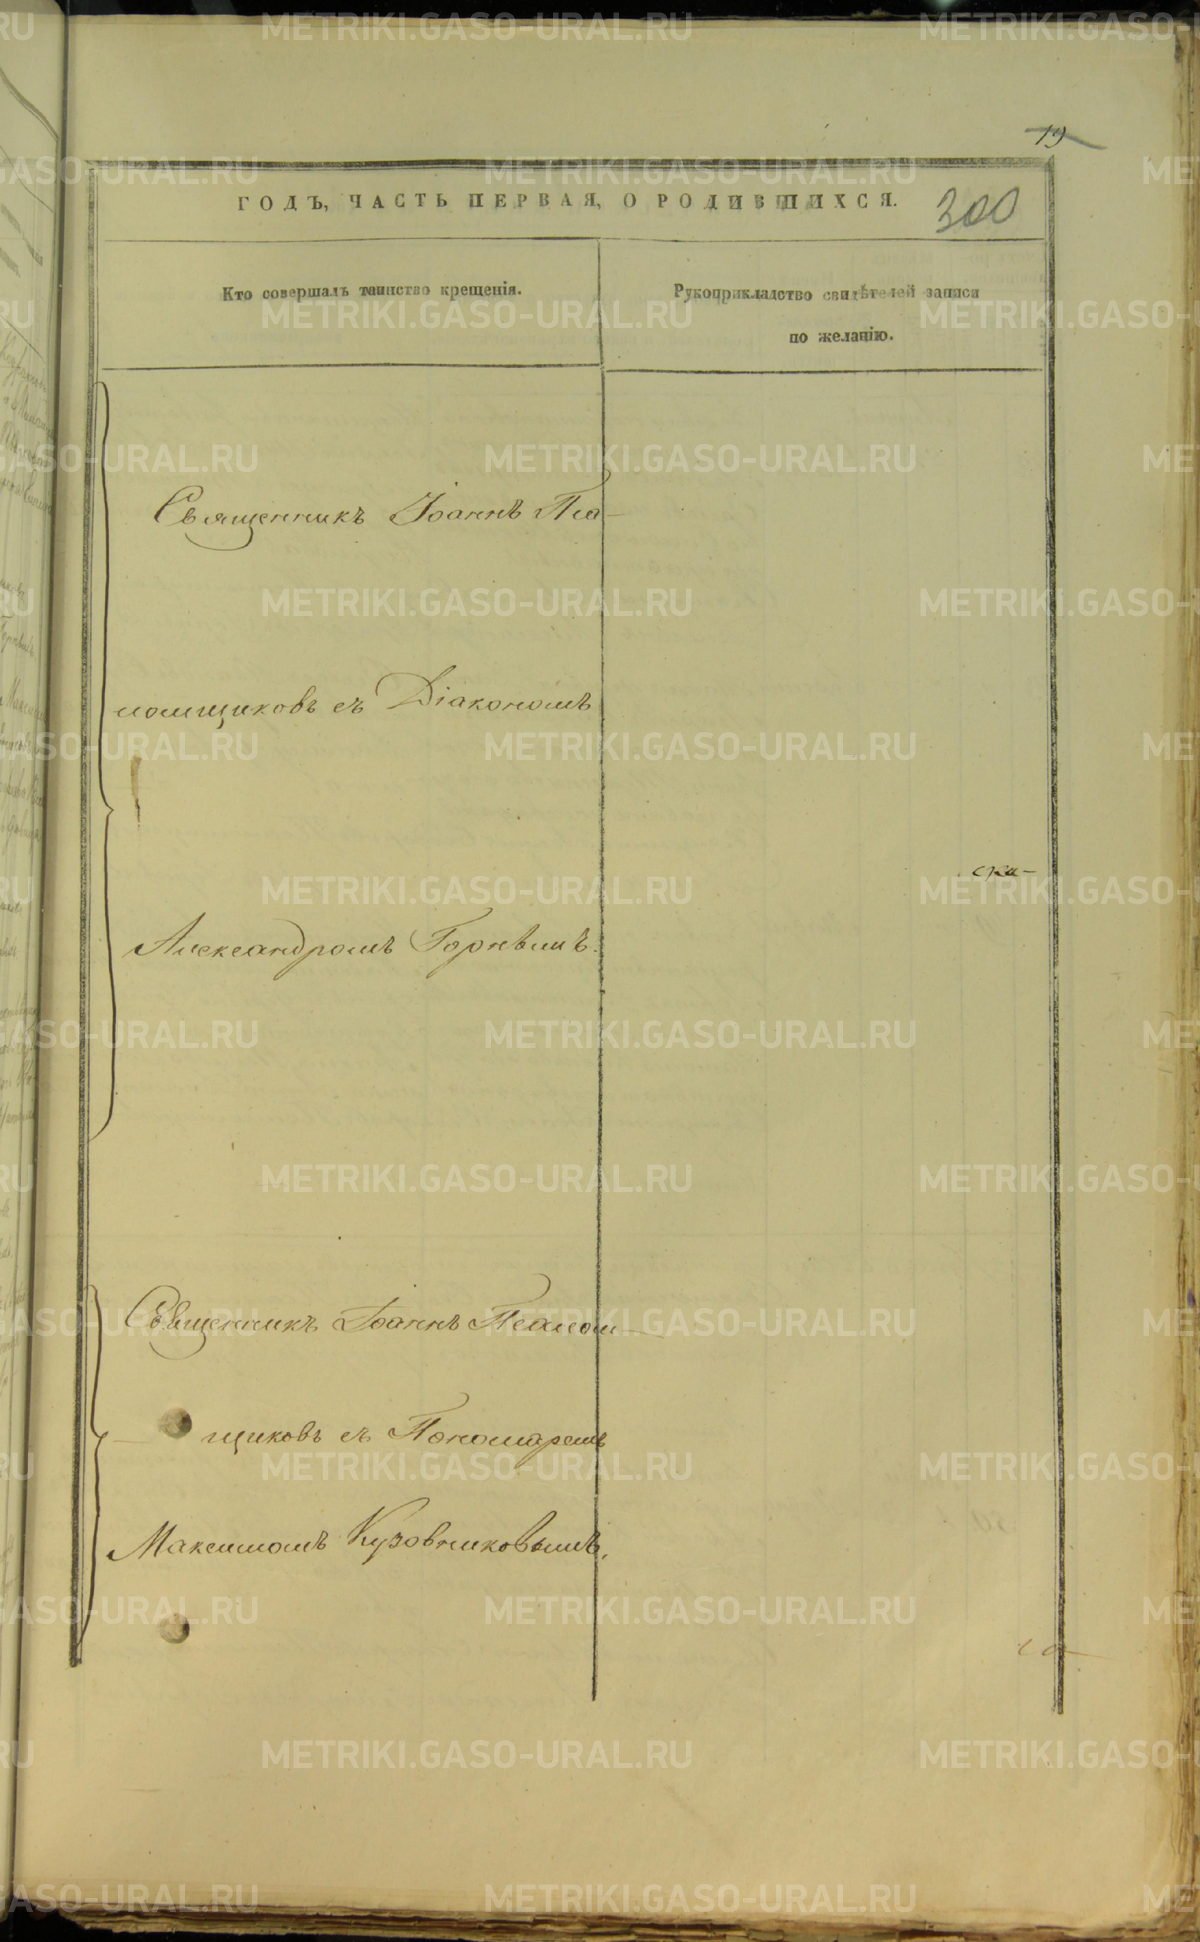 19
ГОДЪ, ЧАСТЬ ПЕРВАЯ, О РОДИВШИХСЯ.
300
Кто совершалъ таинство крещенія.
Рукоприкладство свидѣтелей записи
по желанію.
Священникъ Іоаннъ Пса-
ломщиковъ съ Діакономъ
Александромъ Горнѣмъ.
Священникъ Іоаннъ Псалом-
щиковъ съ Пономаремъ
Максимомъ Кузовниковымъ.
METRIKI.GASO-URAL.RU